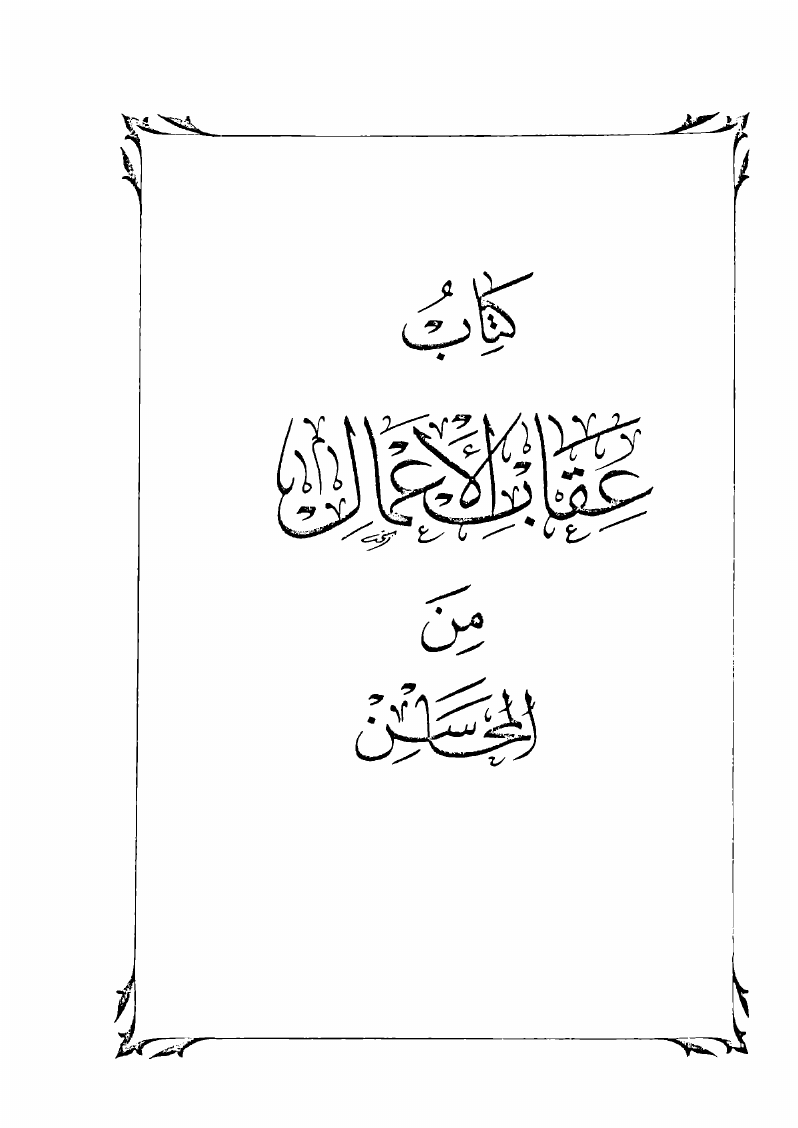 كِتَابُ
عِقَابِ الْأَعْمَالِ
مِنَ
الْمَحَاسِنْ